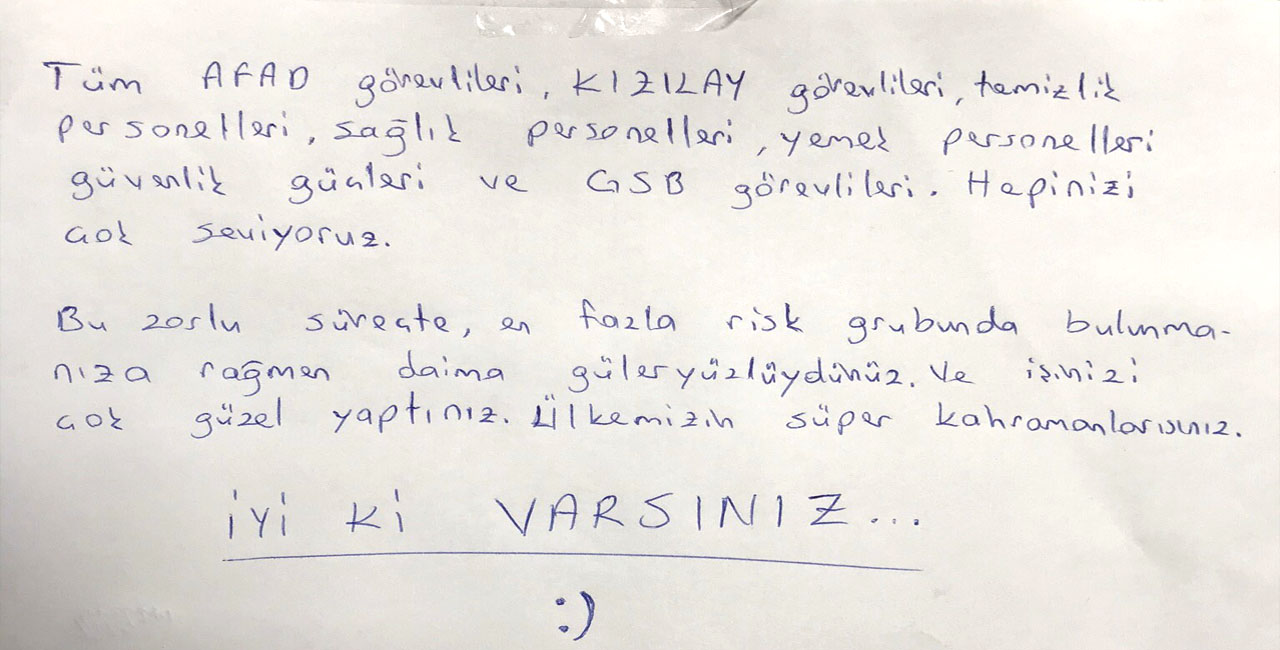 Tüm AFAD görevlileri, KIZILAY görevlileri, temizlik
personelleri, sağlık personelleri, yemek personelleri
güvenlik güçleri ve GSB görevlileri. Hepinizi
çok seviyoruz.
Bu zorlu süreçte, en fazla risk grubunda bulunma-
nıza rağmen daima güleryüzlüydünüz. Ve işinizi
çok güzel yaptınız. Ülkemizin süper kahramanlarısınız.
İYİ Kİ VARSINIZ...
:)